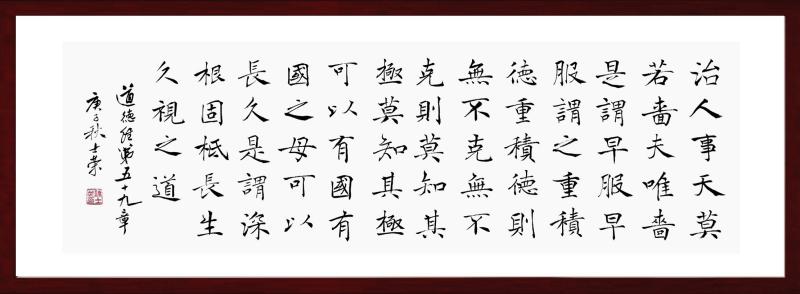 治人事天莫
若嗇夫唯嗇
是謂早服早
服謂之重積
德重積德則
無不克無不
克則莫知其
極莫知其極
可以有國有
國之母可以
長久是謂深
根固柢長生
久視之道
道德經第五十九章
庚子秋士荣